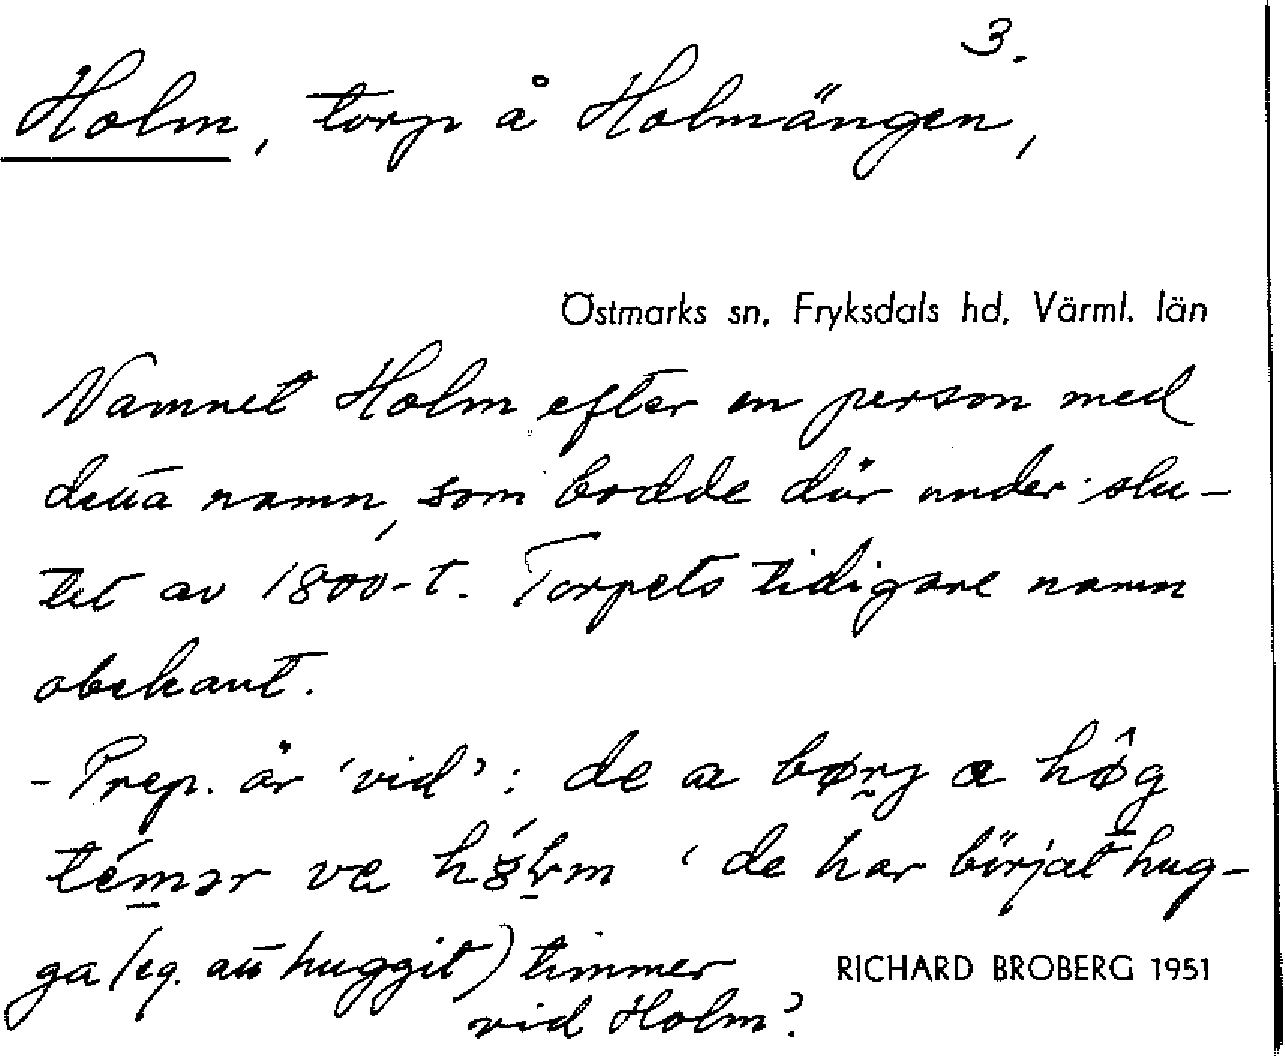 3.
Holm, torp å Holmängen,
Östmarks sn, Fryksdals hd, Värml. län
Namnet Holm efter en person med
detta namn, som bodde där under slu-
tet av 1800-t. Torpets tidigare namn
obekant.
- Prep. är 'vid': de a
témər va 'de har börjat hug-
ga (eg. att huggit) timmer
vid Holm'.
RICHARD BROBERG 1951